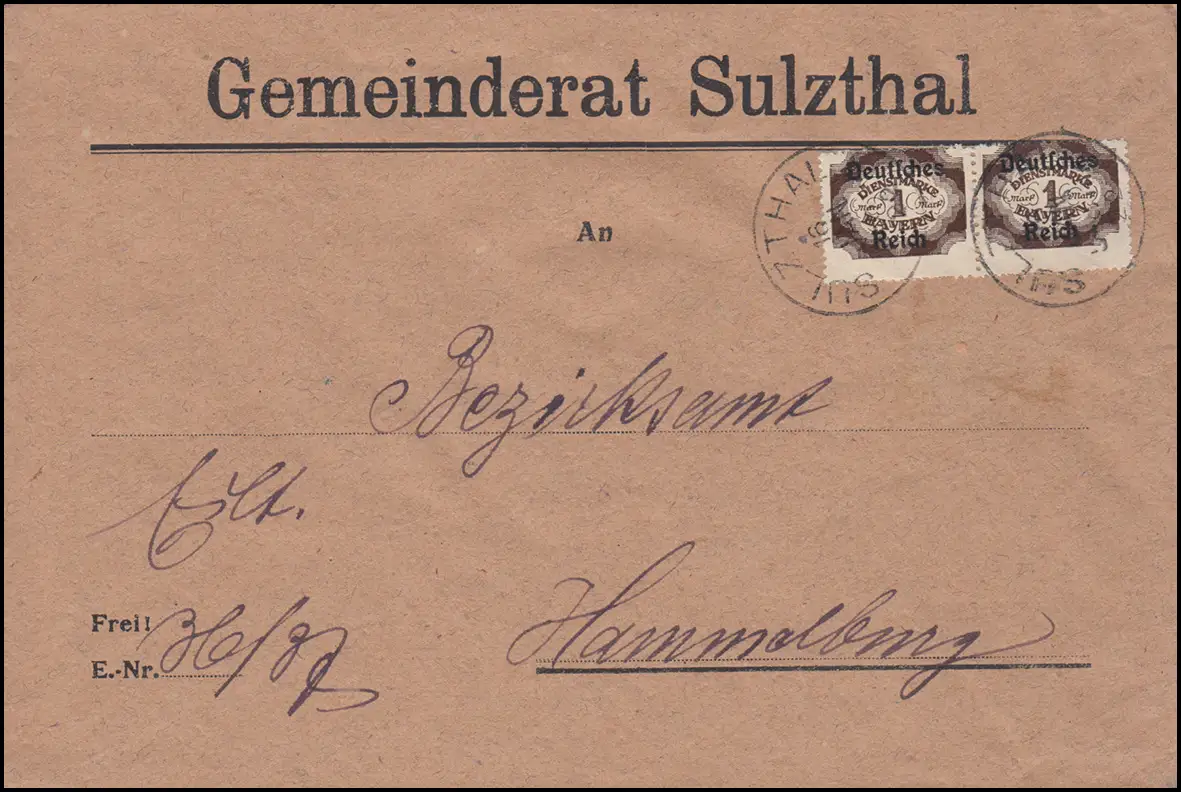 Gemeinderat Sulzthal
Deutsches Deutsches
DIENSTMARKE DIENSTMARKE
Mark 1 Mark Mark 1 Mark
BAYERN BAYERN
Reich Reich
SULZTHAL
SUL
An
Bezirksamt
Eilt.
Frei!
E.-Nr. 36/37
Hammelburg